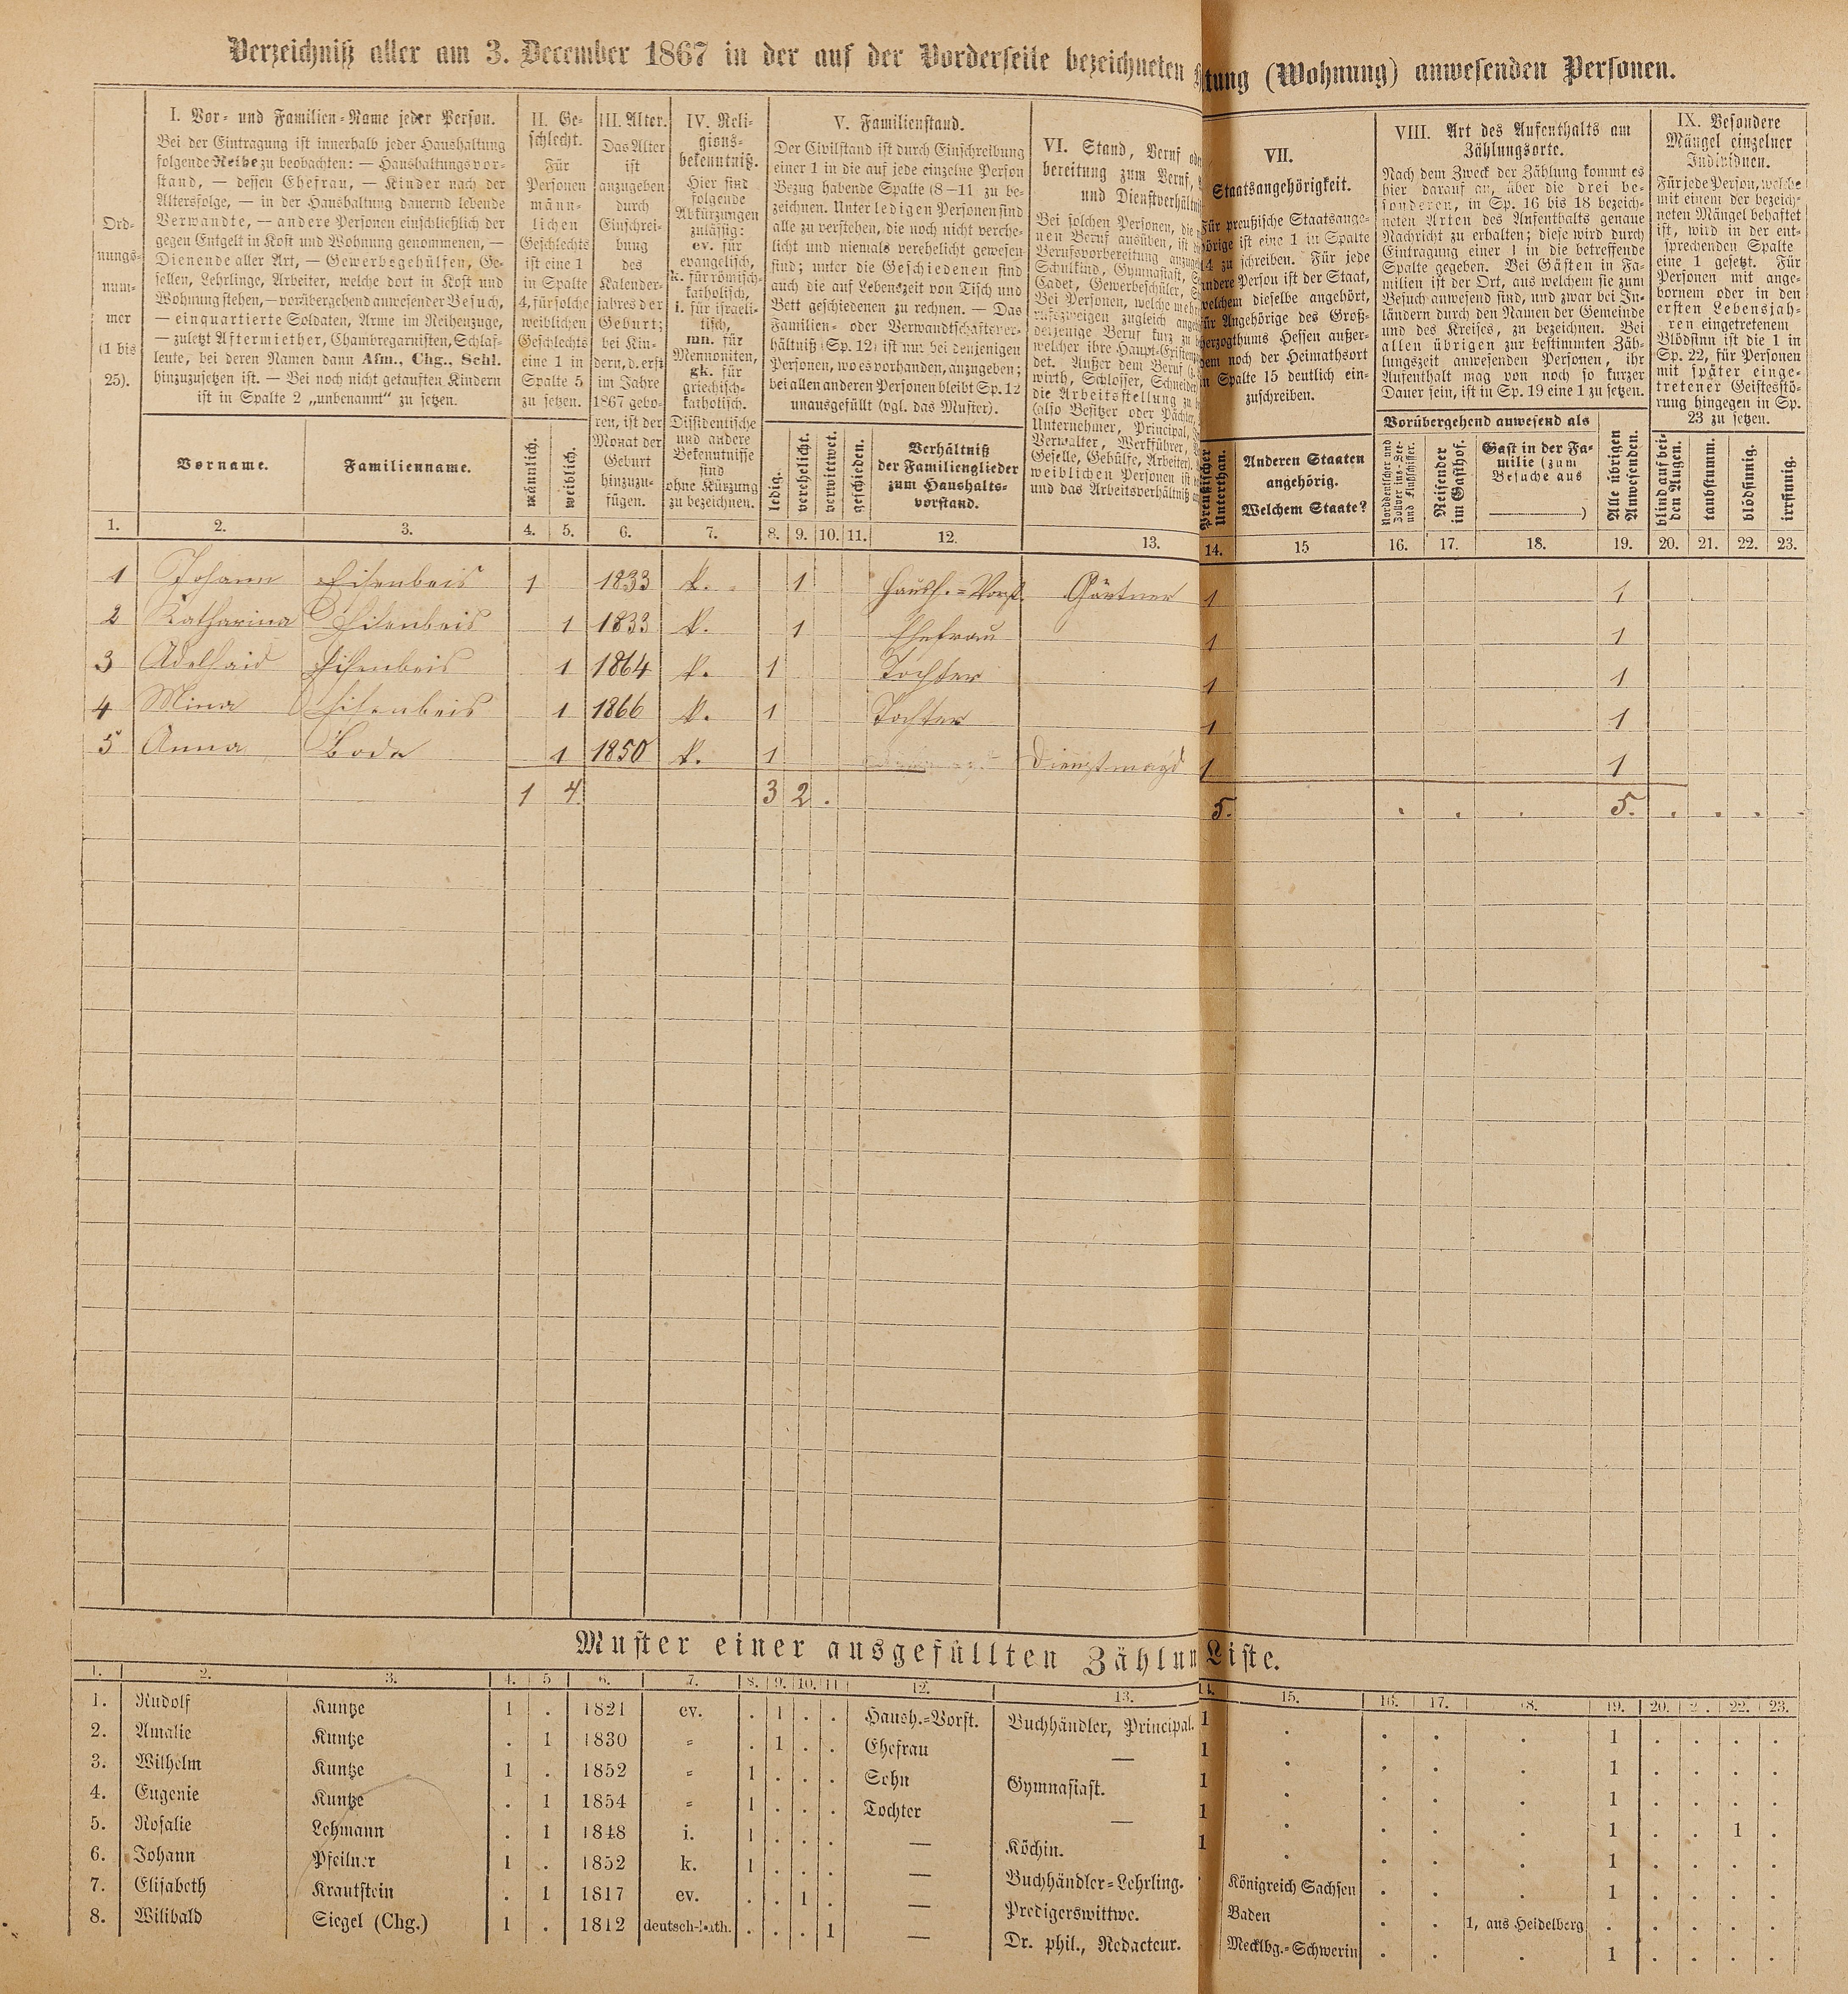 Verzeichniß aller am 3. December 1867 in der auf der Vorderseite bezeichneten Haltung (Wohnung) anwesenden Personen.
Ord-
nungs-
num-
mer
(1 bis
25).
I. Vor- und Familien-Name jeder Person.
Bei der Eintragung ist innerhalb jeder Haushaltung
folgende Reihe zu beobachten: — Haushaltungsvor-
stand, — dessen Ehefrau, — Kinder nach der
Altersfolge, — in der Haushaltung dauernd lebende
Verwandte, — andere Personen einschließlich der
gegen Entgelt in Kost und Wohnung genommenen, —
Dienende aller Art, — Gewerbegehülfen, Ge-
sellen, Lehrlinge, Arbeiter, welche dort in Kost und
Wohnung stehen, — vorübergehend anwesender Besuch,
— einquartierte Soldaten, Arme im Reihenzuge,
— zuletzt Aftermiether, Chambregarnisten, Schlaf-
leute, bei deren Namen dann Afm., Chg., Schl.
hinzuzusetzen ist. — Bei noch nicht getauften Kindern
ist in Spalte 2 „unbenannt" zu setzen.
Vorname. Familienname.
II. Ge-
schlecht.
Für
Personen
männ-
lichen
Geschlechts
ist eine 1
in Spalte
4, für solche
weiblichen
Geschlechts
eine 1 in
Spalte 5
zu setzen.
männlich. weiblich.
III. Alter.
Das Alter
ist
anzugeben
durch
Einschrei-
bung
des
Kalender-
jahres der
Geburt;
bei Kin-
dern, d. erst
im Jahre
1867 gebo-
ren, ist der
Monat der
Geburt
hinzuzu-
fügen.
IV. Reli-
gions-
bekenntniß.
Hier sind
folgende
Abkürzungen
zulässig:
ev. für
evangelisch,
k. für römisch-
katholisch,
i. für israeli-
tisch,
mn. für
Mennoniten,
gk. für
griechisch-
katholisch.
Dissidentische
und andere
Bekenntnisse
sind
ohne Kürzung
zu bezeichnen.
V. Familienstand.
Der Civilstand ist durch Einschreibung
einer 1 in die auf jede einzelne Person
Bezug habende Spalte (8—11 zu be-
zeichnen. Unter ledigen Personen sind
alle zu verstehen, die noch nicht verehe-
licht und niemals verehelicht gewesen
sind; unter die Geschiedenen sind
auch die auf Lebenszeit von Tisch und
Bett geschiedenen zu rechnen. — Das
Familien- oder Verwandtschaftsver-
hältniß (Sp. 12) ist nur bei denjenigen
Personen, wo es vorhanden, anzugeben;
bei allen anderen Personen bleibt Sp. 12
unausgefüllt (vgl. das Muster).
ledig. verehelicht. verwittwet. geschieden.
Verhältniß
der Familienglieder
zum Haushalts-
vorstand.
VI. Stand, Beruf oder
bereitung zum Beruf,
und Dienstverhältniß
Bei solchen Personen, die
nen Beruf ausüben, ist
Berufsvorbereitung anzugeben
Schulkind, Gymnasiast,
Cadet, Gewerbeschüler,
Bei Personen, welche mehr
rufszweigen zugleich
derjenige Beruf kurz zu
welcher ihre Haupt-Existenz
det. Außer dem Beruf
wirth, Schlosser, Schneider
die Arbeitsstellung zu
(also Besitzer oder Pächter,
Unternehmer, Principal,
Verwalter, Werkführer,
Geselle, Gehülfe, Arbeiter).
weiblichen Personen ist
und das Arbeitsverhältniß
VII.
Staatsangehörigkeit.
Für preußische Staatsange-
hörige ist eine 1 in Spalte
14 zu schreiben. Für jede
andere Person ist der Staat,
welchem dieselbe angehört,
für Angehörige des Groß-
herzogthums Hessen außer-
dem noch der Heimathsort
in Spalte 15 deutlich ein-
zuschreiben.
Preußischer
Unterthan.
Anderen Staaten
angehörig.
Welchem Staate?
VIII. Art des Aufenthalts am
Zählungsorte.
Nach dem Zweck der Zählung kommt es
hier darauf an, über die drei be-
sonderen, in Sp. 16 bis 18 bezeich-
neten Arten des Aufenthalts genaue
Nachricht zu erhalten; diese wird durch
Eintragung einer 1 in die betreffende
Spalte gegeben. Bei Gästen in Fa-
milien ist der Ort, aus welchem sie zum
Besuch anwesend sind, und zwar bei In-
ländern durch den Namen der Gemeinde
und des Kreises, zu bezeichnen. Bei
allen übrigen zur bestimmten Zäh-
lungszeit anwesenden Personen, ihr
Aufenthalt mag von noch so kurzer
Dauer sein, ist in Sp. 19 eine 1 zu setzen.
Vorübergehend anwesend als
Norddeutscher und
Zollvereins-See-
und Flußschiffer.
Reisender
im Gasthof.
Gast in der Fa-
milie (zum
Besuche aus
)
Alle übrigen
Anwesenden.
IX. Besondere
Mängel einzelner
Individuen.
Für jede Person, welche
mit einem der bezeich-
neten Mängel behaftet
ist, wird in der ent-
sprechenden Spalte
eine 1 gesetzt. Für
Personen mit ange-
bornem oder in den
ersten Lebensjah-
ren eingetretenem
Blödsinn ist die 1 in
Sp. 22, für Personen
mit später einge-
tretener Geistesstö-
rung hingegen in Sp.
23 zu setzen.
blind auf bei-
den Augen.
taubstumm. blödsinnig. irrsinnig.
1. 2. 3. 4. 5. 6. 7. 8. 9. 10. 11. 12. 13. 14. 15 16. 17. 18. 19. 20. 21. 22. 23.
1 Johann Eisenbeis 1 1833 k. 1 Haush.=Vorst. Gärtner 1 1
2 Katharina Eisenbeis 1 1833 k. 1 Ehefrau 1 1
3 Adelhaid Eisenbeis 1 1864 k. 1 Tochter 1 1
4 Mina Eisenbeis 1 1866 k. 1 Tochter 1 1
5 Anna Bode 1 1850 k. 1 Dienstmagd 1 1
1 4 3 2 . 5. . . . 5. . . . .
Muster einer ausgefüllten Zählungs Liste.
1. 2. 3. 4. 5 6. 7. 8. 9. 10. 11 12. 13. 14. 15. 16. 17. 18. 19. 20. 2 . 22. 23.
1. Rudolf Kuntze 1 . 1821 ev. . 1 . . Haush.=Vorst. Buchhändler, Principal. 1 . . . . 1 . . . .
2. Amalie Kuntze . 1 1830 = . 1 . . Ehefrau — 1 . . . . 1 . . . .
3. Wilhelm Kuntze 1 . 1852 = 1 . . . Sohn Gymnasiast. 1 . . . . 1 . . . .
4. Eugenie Kuntze . 1 1854 = 1 . . . Tochter — 1 . . . . 1 . . 1 .
5. Rosalie Lehmann . 1 1848 i. 1 . . . — Köchin. 1 . . . . 1 . . . .
6. Johann Pfeilner 1 . 1852 k. 1 . . . — Buchhändler=Lehrling. . Königreich Sachsen . . . 1 . . . .
7. Elisabeth Krautstein . 1 1817 ev. . . 1 . — Predigerswittwe. Baden . . 1, aus Heidelberg . . . . .
8. Wilibald Siegel (Chg.) 1 . 1812 deutsch-kath. . . . 1 — Dr. phil., Redacteur. Mecklbg.=Schwerin . . . 1 . . . .